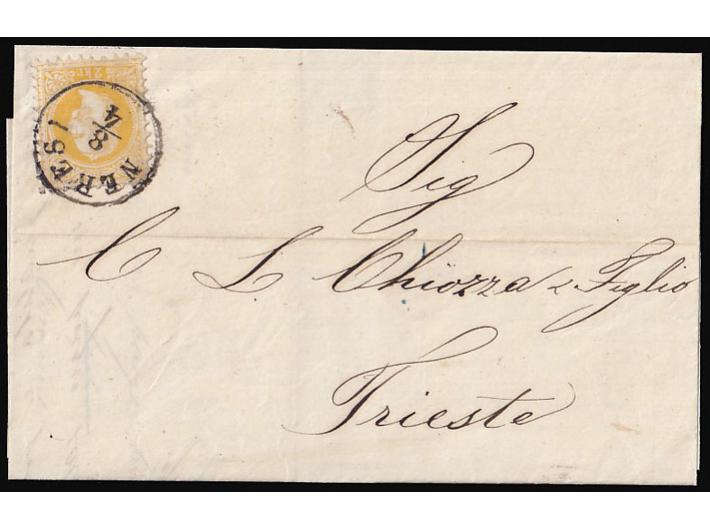 2 kr
NERESI
8/4
Sig
C L Chiozza & Figlio
Trieste